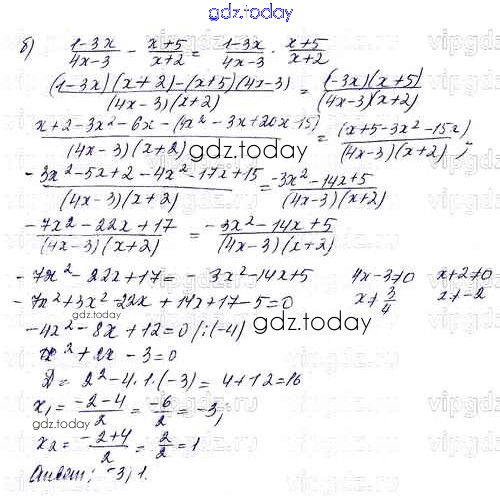 gdz.today
б) (1-3x)/(4x-3) - (x+5)/(x+2) = (1-3x)/(4x-3) · (x+5)/(x+2)
((1-3x)(x+2)-(x+5)(4x-3))/((4x-3)(x+2)) = ((1-3x)(x+5))/((4x-3)(x+2))
(x+2-3x²-6x-(4x²-3x+20x-15))/((4x-3)(x+2)) = (x+5-3x²-15x)/((4x-3)(x+2));
gdz.today
(-3x²-5x+2-4x²-17x+15)/((4x-3)(x+2)) = (-3x²-14x+5)/((4x-3)(x+2))
(-7x²-22x+17)/((4x-3)(x+2)) = (-3x²-14x+5)/((4x-3)(x+2))
-7x²-22x+17=-3x²-14x+5 4x-3≠0 x+2≠0
-7x²+3x²-22x+14x+17-5=0 x≠3/4 x≠-2
-4x²-8x+12=0 /:(-4)
gdz.today
x²+2x-3=0
D=2²-4·1·(-3)=4+12=16
x₁=(-2-4)/2=-6/2=-3;
x₂=(-2+4)/2=2/2=1.
Ответ: -3; 1.
vipgdz.ru